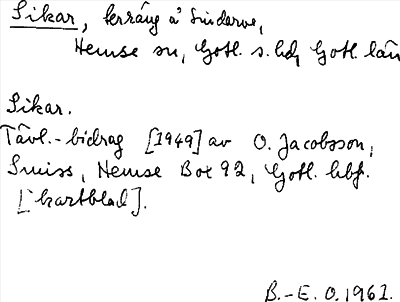 Sikar, terräng å Sinderve,
Hemse sn, Gotl. s. hd, Gotl. län
Sikar.
Tävl.-bidrag [1949] av O. Jacobsson,
Smiss, Hemse Box 92, Gotl.
[kartblad].
B.-E. O. 1961.